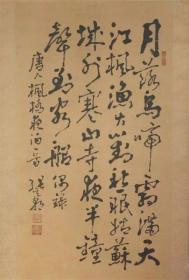 月落烏啼霜滿天
江楓漁火對愁眠姑蘇
城外寒山寺夜半鐘
聲到客船 偶錄
唐人楓橋夜泊一首